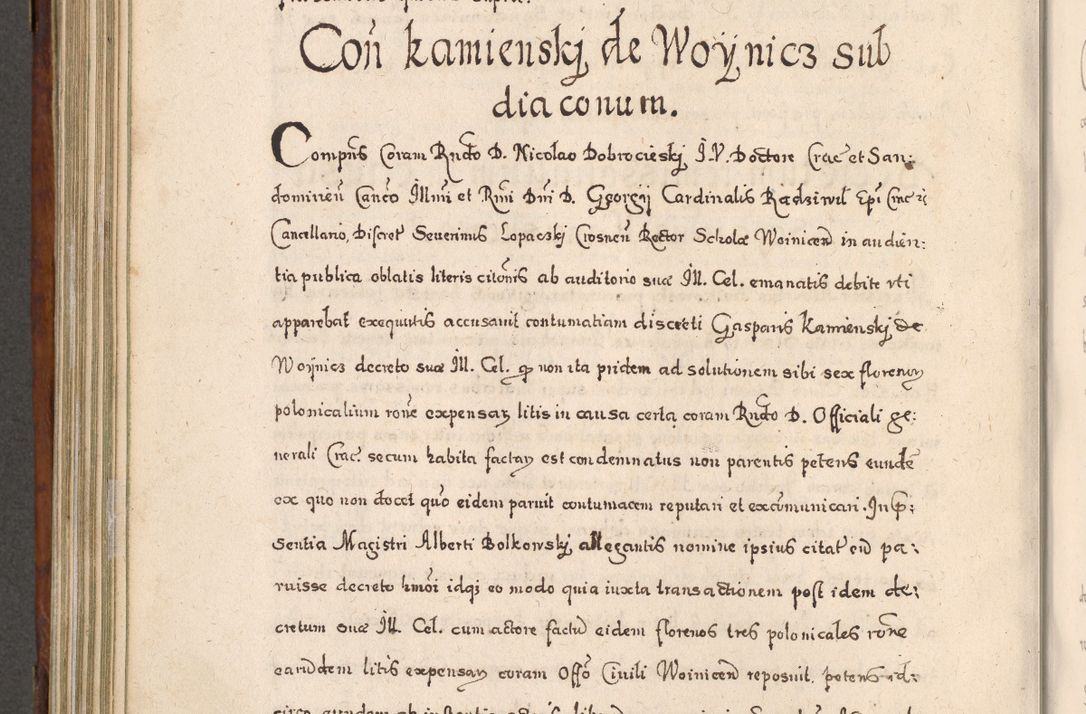 Coñ kamienskj de Woÿnicz sub
diaconum.
Comprñs Coram Rndo D. Nicolao Dobrocieskj J. V. Doctore Crac et San:
domirien Canco Illmi et Rmi Dni D. Georgij Cardinalis Radziwil Epi Crac
Cancellario, Discret Seuerinus Lopaczkj Crosnen Rector Scholæ Woinicen in audien:
tia publica oblatis literis citonis ab auditorio suæ Ill. Cel. emanatis debite vti
apparebat exequutis accusauit contumatiam discreti Gasparis Kamienskj de
Woÿnicz decreto suæ Ill. Cel. non ita pridem ad solutionem sibi sex florenoy
polonicalium rone expensay litis in causa certa coram Rndo D. Officiali ge:
nerali Crac. secum habita factay est condemnatus non parentis petens eunde
ex quo non docet quo eidem paruit contumacem reputari et excomunicari. In p:
sentia Magistri Alberti Bolkowskj allegantis nomine ipsius citat eu pa:
ruisse decreto hmoi idqz eo modo quia iuxta transactionem post idem de:
cretum suæ Ill. Cel. cum actore factu eidem florenos tres polonicales rone
earudem litis expensay coram Offo Ciuili Woinicen reposuit, petens id: